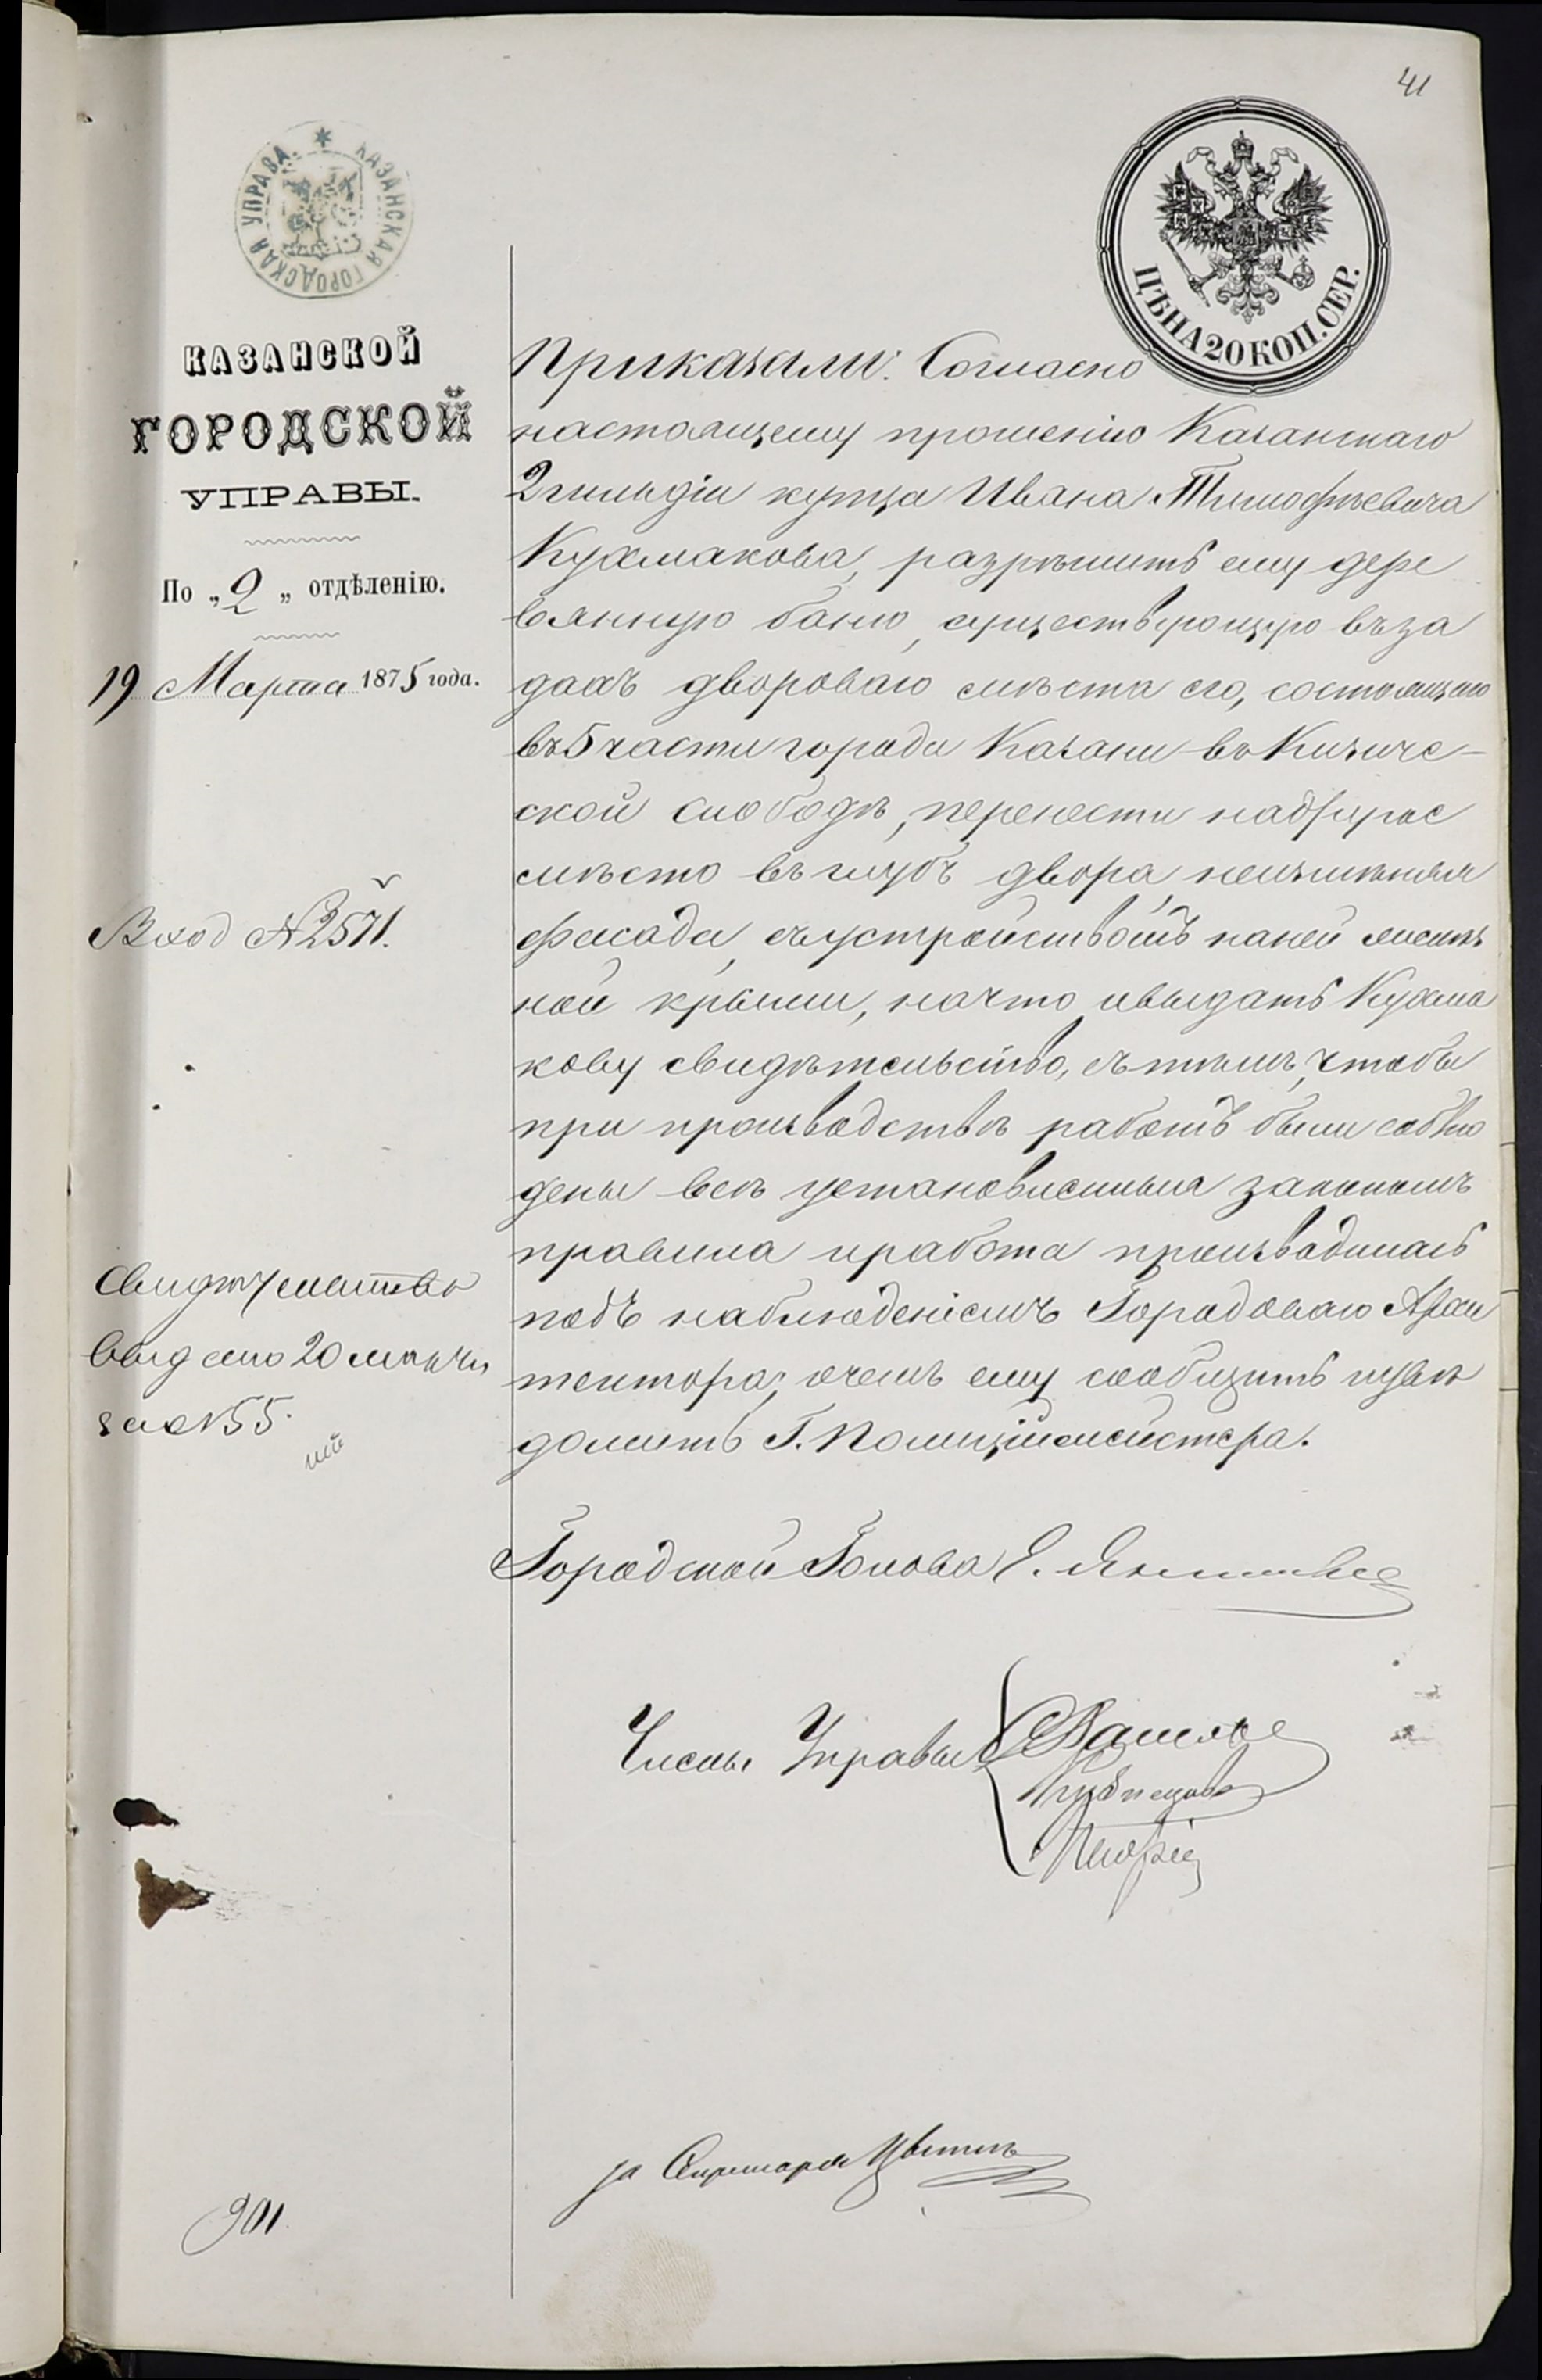 41
КАЗАНСКАЯ ГОРОДСКАЯ УПРАВА.
ЦѢНА 20 КОП. СЕР.
КАЗАНСКОЙ
ГОРОДСКОЙ
УПРАВЫ.
По „2„ отдѣленію.
19 Марта 1875 года.
Вход №2571.
Свидѣтельство
выдано 20 марта
за №55.
901
Приказали: Согласно
настоящему прошенію Казанскаго
2 гильдіи купца Ивана Тимофѣевича
Кухмакова, разрѣшить ему дере
вянную баню, существующую въ за
дахъ двороваго мѣста его, состоящаго
въ 5 части города Казани въ Кизиче-
ской слободѣ, перенести на другое
мѣсто въ глубь двора, неизмѣняя
фасада, съ устройствомъ на ней желѣз
ной крыши, на что и выдать Кухма
кову свидѣтельство, съ тѣмъ, чтобы
при производствѣ работъ были соблю
дены всѣ установленныя закономъ
правила и работа производилась
подъ наблюденіемъ Городоваго Архи
тектора, о чемъ ему сообщить и увѣ
домить Г. Полиціймейстера.
Городской Голова Е.
Члены Управы
Кузнецовъ
за Секретаря